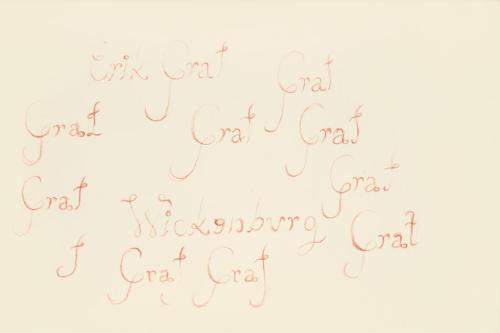 Erik Graf Graf
Graf Graf Graf
Graf Graf
Wickenburg Graf
f Graf Graf